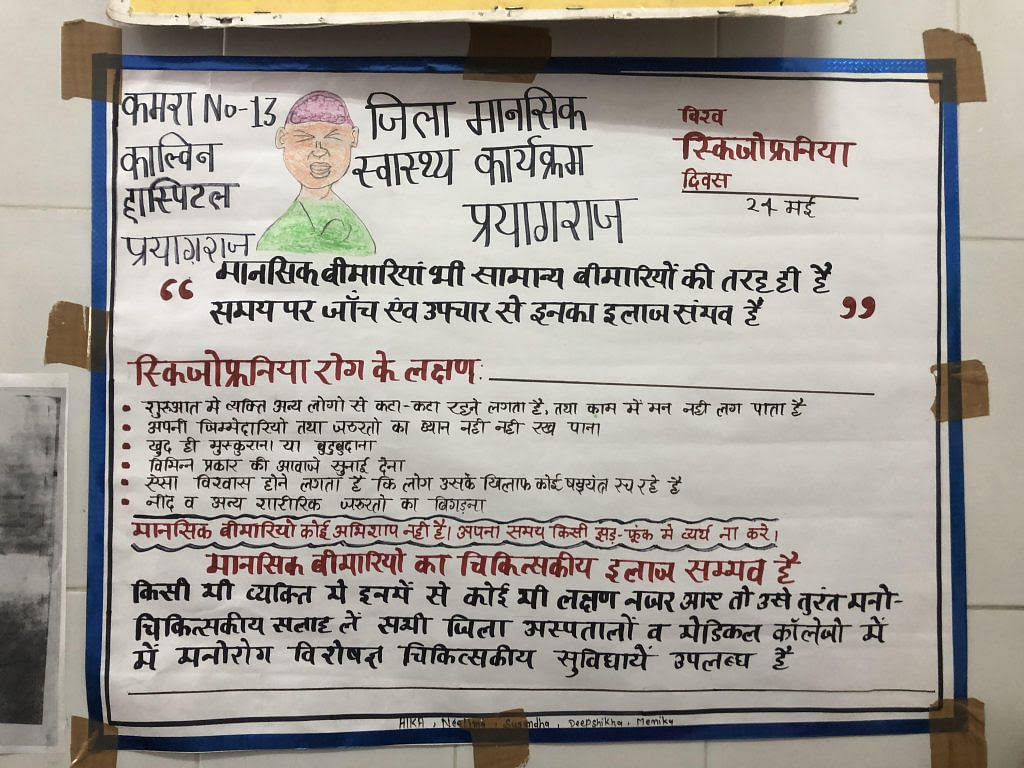 कमरा No-13
काल्विन
हास्पिटल
प्रयागराज
जिला मानसिक
स्वास्थ्य कार्यक्रम
प्रयागराज
विश्व
स्किजोफ्रनिया
दिवस
24 मई
“ मानसिक बीमारियां भी सामान्य बीमारियों की तरह ही है
समय पर जाँच एंव उपचार से इनका इलाज संभव है ”
स्किजोफ्रनिया रोग के लक्षण:
• शुरुआत मे व्यक्ति अन्य लोगो से कटा-कटा रहने लगता है, तथा काम में मन नही लग पाता है
• अपनी जिम्मेदारियो तथा जरुरतो का ध्यान नही नही रख पाना
• खुद ही मुस्कुराना या बुदबुदाना
• विभिन्न प्रकार की आवाजे सुनाई देना
• ऐसा विश्वास होने लगता है कि लोग उसके खिलाफ कोई षड्यंत्र रच रहे है
• नींद व अन्य शारीरिक जरुरतो का बिगड़ना
मानसिक बीमारियो कोई अभिशाप नही है। अपना समय किसी झड़-फूंक मे व्यर्थ ना करे।
मानसिक बीमारियो का चिकित्सकीय इलाज सम्भव है
किसी भी व्यक्ति मे इनमें से कोई भी लक्षण नजर आए तो उसे तुरंत मनो-
चिकित्सकीय सलाह लें सभी जिला अस्पतालों व मेडिकल कॉलेजो में
में मनोरोग विशेषज्ञ चिकित्सकीय सुविधायें उपलब्ध है
Neelima, Sugandha, Deepshikha, Menika